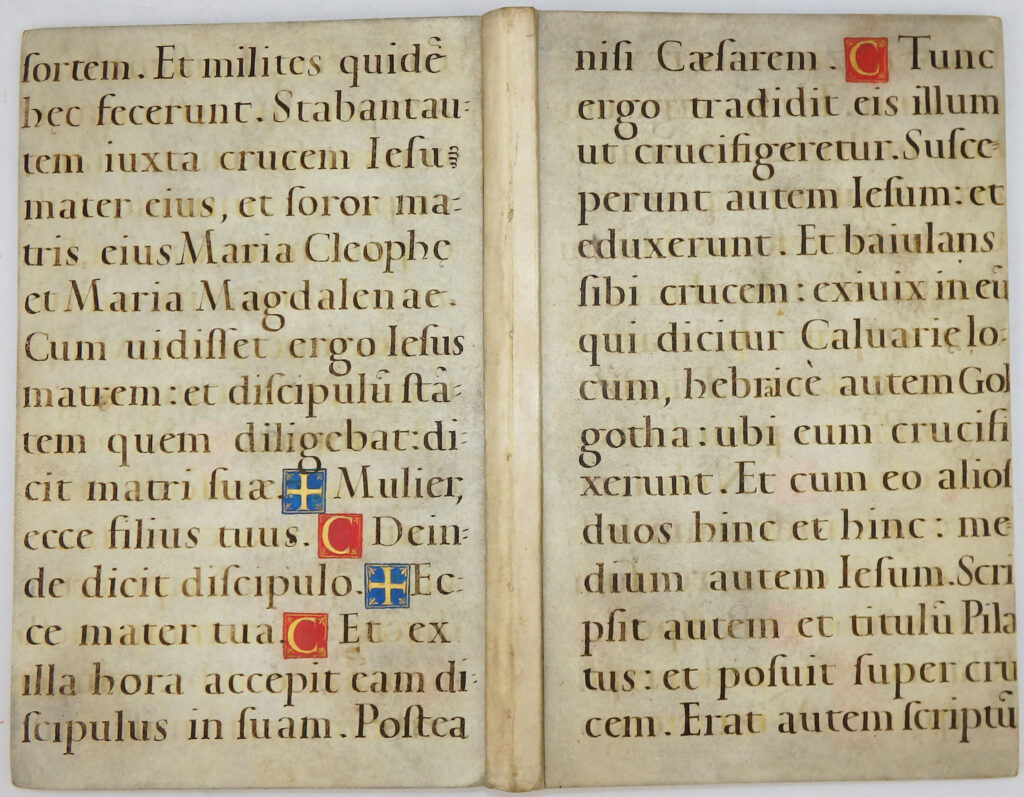 ſortem. Et milites quidē
hęc fecerunt. Stabant au-
tem iuxta crucem Ieſu
mater eius, et ſoror ma-
tris eius Maria Cleophę
et Maria Magdalenae.
Cum uidiſſet ergo Ieſus
matrem: et diſcipulū ſtā-
tem quem diligebat: di-
cit matri ſuæ. ✠ Mulier,
ecce filius tuus. C Dein-
de dicit diſcipulo. ✠ Ec-
ce mater tua. C Et ex
illa hora accepit eam di-
ſcipulus in ſuam. Poſtea
niſi Cæſarem. C Tunc
ergo tradidit eis illum
ut crucifigeretur. Suſce-
perunt autem Ieſum: et
eduxerunt. Et baiulans
ſibi crucem: exiuix in eū
qui dicitur Caluarię lo-
cum, hebraicè autem Gol
gotha: ubi eum crucifi
xerunt. Et cum eo alioſ
duos hinc et hinc: me
dium autem Ieſum. Scri
pſit autem et titulū Pila
tus: et poſuit ſuper cru
cem. Erat autem ſcriptū